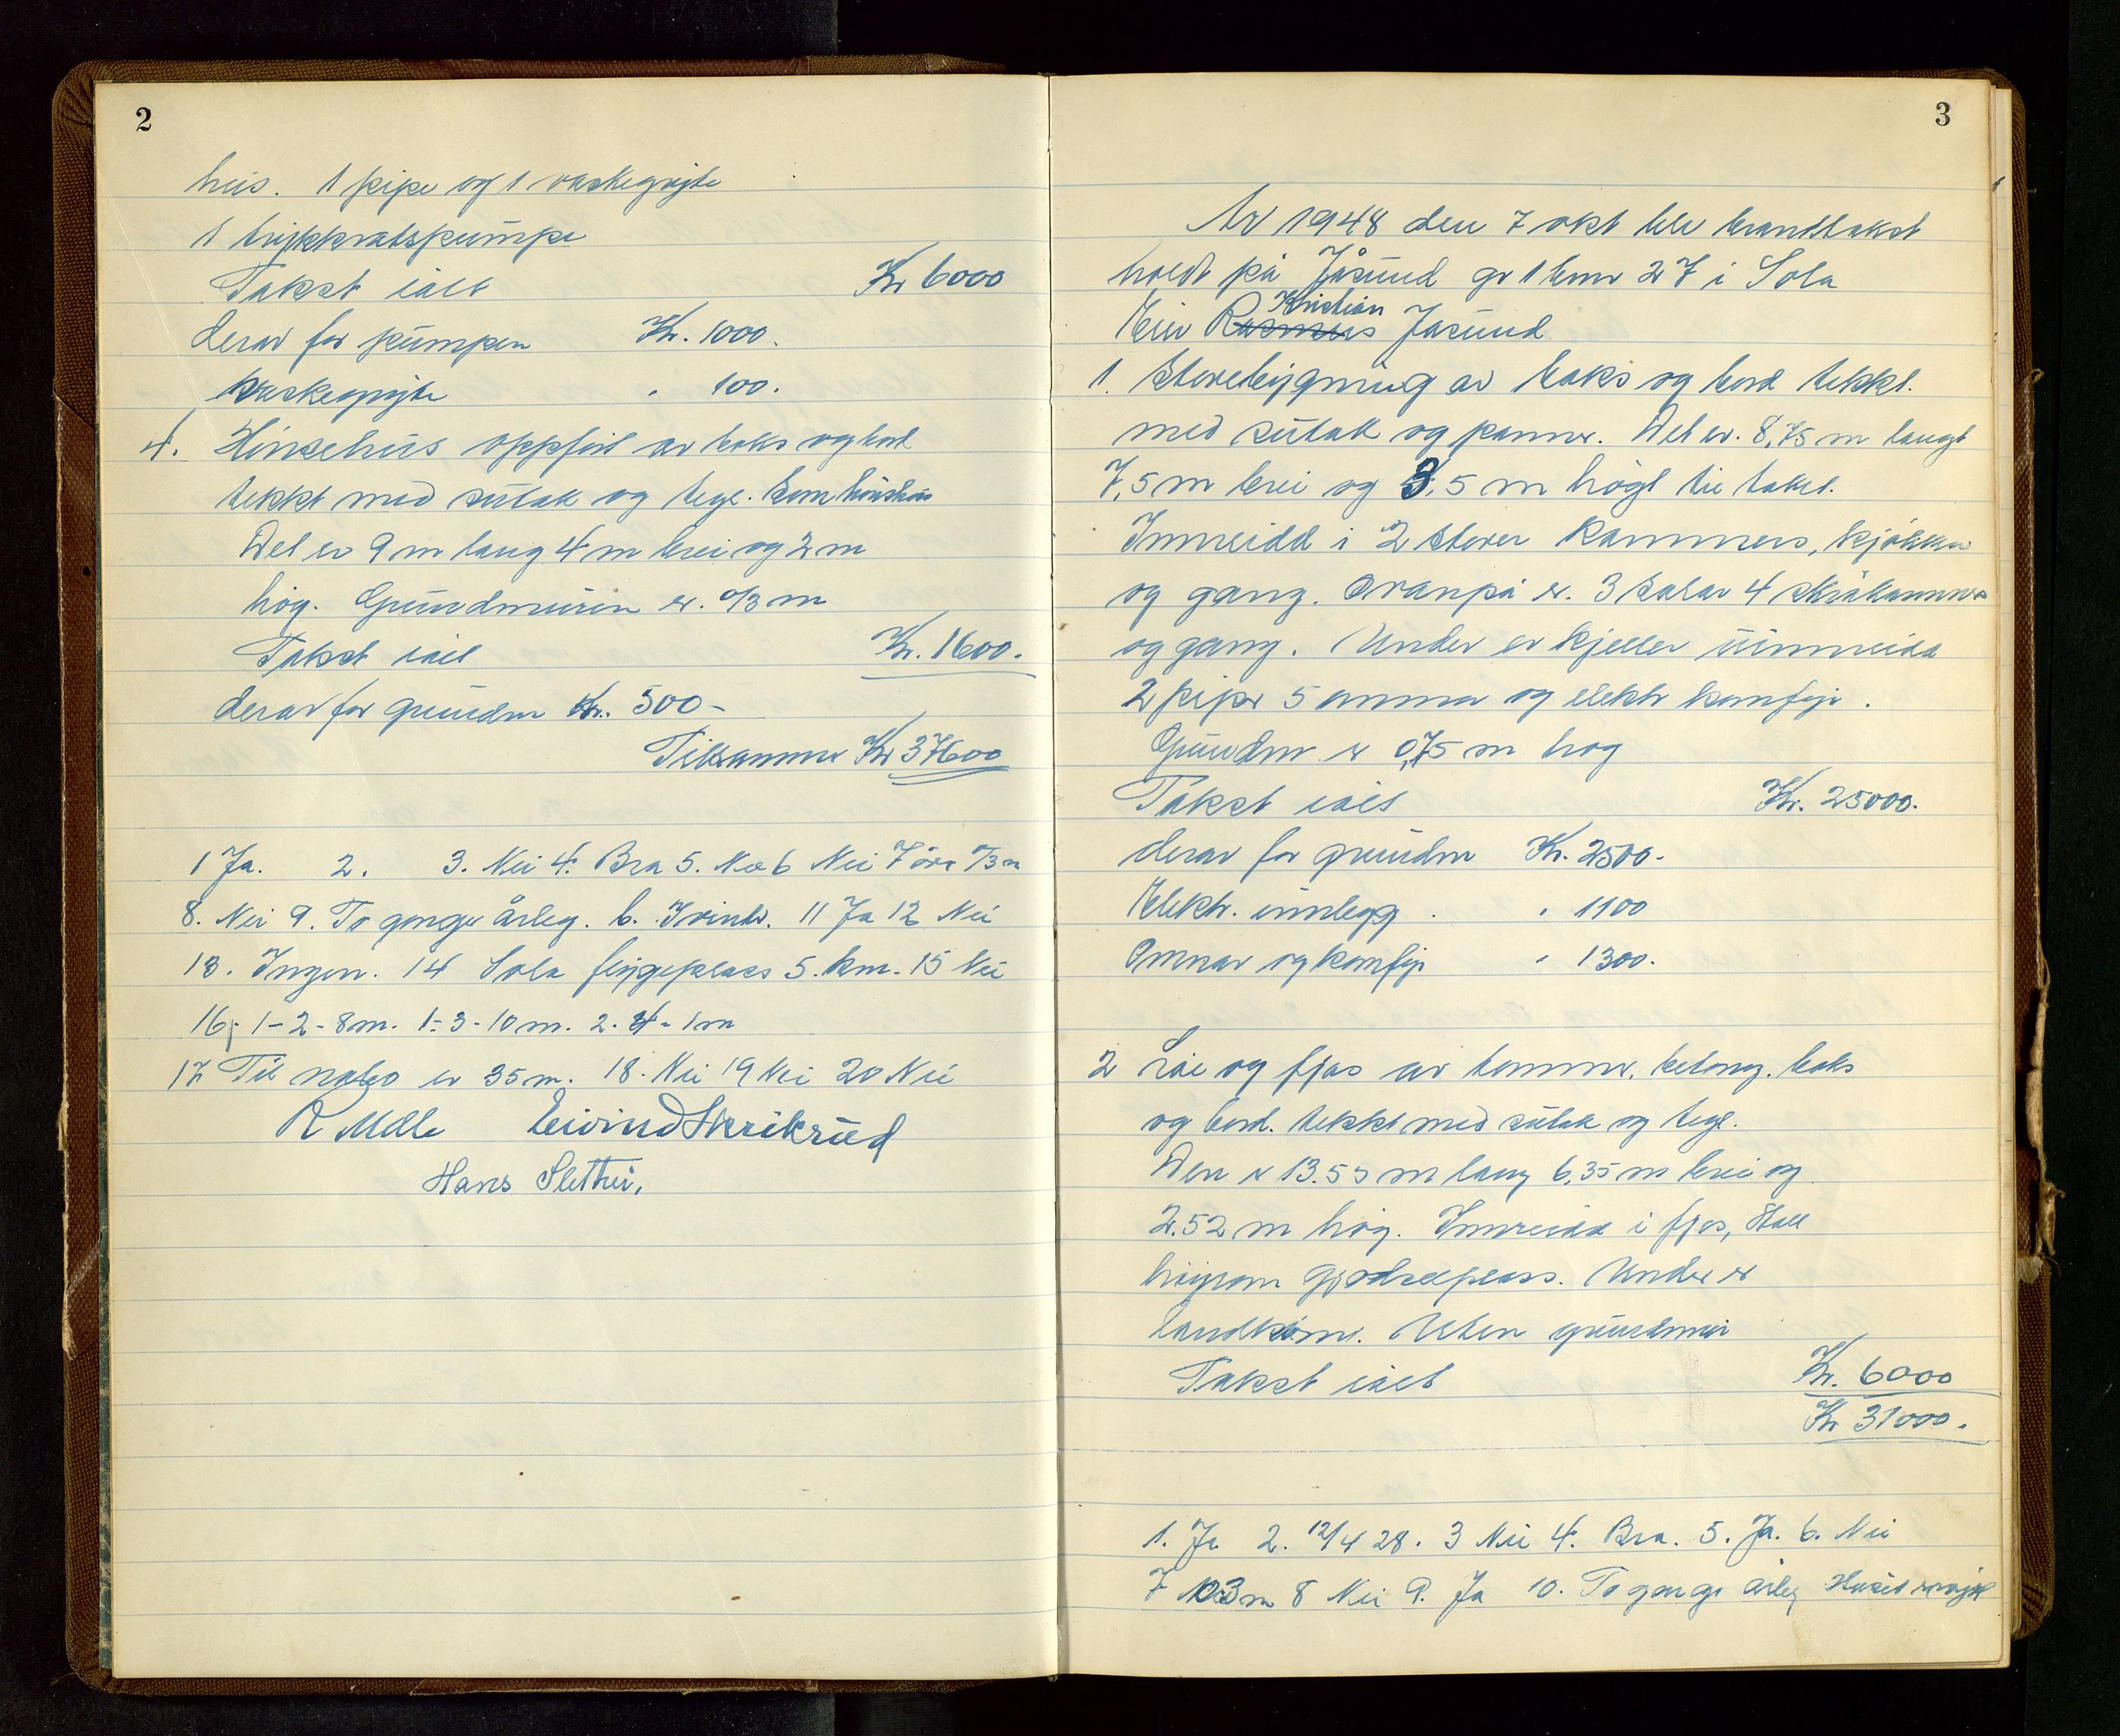 2
heis. 1 pipe og 1 vaskegryte
1 trykkvatspumpe
Takst ialt Kr 6000
derav for pumpen Kr. 1000.
Vaskegryte " 100.
4. Hönsehus oppfört av boks og bord
tekkt med sutak og tegl. Som hönshus
Det er 9 m lang 4 m brei og 2 m
hög. Grundmuren er. 0/3 m
Takst ialt Kr. 1600.
derav for grundm Kr. 500-
Tilsammen Kr 37600
1 Ja. 2. 3. Nei 4. Bra 5. Nei 6 Nei 7 över 0/3 m
8. Nei 9. To gonger årleg. b. Ivinkr. 11 Ja 12 Nei
13. Ingen. 14 Sola flygeplass 5. km. 15 Nei
16. 1-2-8m. 1-3-10 m. 2-4-1m
17 Til nabo er 35 m. 18. Nei 19 Nei 20 Nei
R Melle Eivind Skrikrud
Hans Slettei,
3
År 1948 den 7 okt ble branntakst
holdt på Jåsund gr 1 bnr 27 i Sola
Kristian
Eier Rasmus Jåsund
1. Stovebygning av boks og bord tekkt.
med sutak og panner. Det er. 8,75 m langt
7,5 m brei og 3,5 m högt til taket.
Innreidd i 2 stover kammers, kjökken
og gang. Ovanpå er. 3 salar 4 skråkammers
og gang. Under er kjeller uinnreidd
2 piper 5 omnar og elektr komfyr.
Grundm er 0,75 m hög
Takst ialt Kr. 25000.
derav for grundm Kr. 2500.
Elektr. innlegg. " 1100
Omnar og komfyr " 1300.
2 Löe og fjos av tommer. betong. boks
og bord. tekkt med sutak og tegl.
Den er 13.55 m lang 6,35 m brei og
2.52 m hög. Innreidd i fjos, Stall
höyrom gjödselplass. Under er
landkum. Uten grundmur
Takst ialt Kr. 6000
Kr 31000.
1. Ja 2. 12/4 28. 3 Nei 4. Bra. 5. Ja. 6. Nei
7 03 m 8 Nei 9. Ja 10. To gonge årleg Huset er